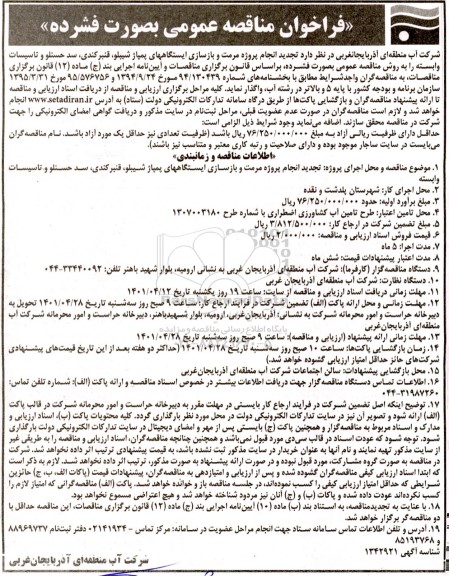 «فراخوان مناقصه عمومی بصورت فشرده»
شرکت آب منطقه‌ای آذربایجانغربی در نظر دارد تجدید انجام پروژه مرمت و بازسازی ایستگاههای پمپاژ شیبیلو، قنبرکندی، سد حسنلو و تاسیسات
وابسته را به روش مناقصه عمومی بصورت فشرده، براساس قانون برگزاری مناقصات و آیین‌نامه اجرایی بند (ج) ماده (۱۲) قانون برگزاری
مناقصات، به مناقصه‌گران واجدشرایط مطابق با بخشنامه‌های شماره ۹۴/۱۳۰۴۳۹ مورخ ۱۳۹۴/۹/۲۴ و ۹۵/۵۷۶۷۵۶ مورخ ۱۳۹۵/۳/۳۱
سازمان برنامه و بودجه کشور با پایه ۵ و بالاتر در رشته آب، واگذار نماید. کلیه مراحل برگزاری ارزیابی و مناقصه از دریافت اسناد ارزیابی و مناقصه
تا ارائه پیشنهاد مناقصه‌گران و بازگشایی پاکت‌ها از طریق درگاه سامانه تدارکات الکترونیکی دولت (ستاد) به آدرس www.setadiran.ir انجام
خواهد شد و لازم است مناقصه‌گران در صورت عدم عضویت قبلی، مراحل ثبت‌نام در سایت مذکور و دریافت گواهی امضای الکترونیکی را جهت
شرکت در مناقصه محقق سازند. اضافه می‌نماید وجود شرایط ذیل الزامی است:
حداقل دارای ظرفیت ریالی آزاد به مبلغ ۷۶/۲۵۰/۰۰۰/۰۰۰ ریال باشند (ظرفیت تعدادی نیز حداقل یک مورد آزاد باشد. نام مناقصه‌گران
می‌بایست در سایت ساجار موجود بوده و دارای صلاحیت و رتبه کاری معتبر و متناسب نیز باشند).
«اطلاعات مناقصه و زمانبندی»
۱. موضوع مناقصه و محل اجرای پروژه: تجدید انجام پروژه مرمت و بازسازی ایستگاههای پمپاژ شیبیلو، قنبرکندی، سد حسنلو و تاسیسات
وابسته
۲. محل اجرای کار: شهرستان پلدشت و نقده
۳. مبلغ برآورد اولیه: حدود ۷۶/۲۵۰/۰۰۰/۰۰۰ ریال
۴. محل تامین اعتبار: طرح تامین آب کشاورزی اضطراری با شماره طرح ۱۳۰۷۰۰۳۱۸۰
۵. مبلغ تضمین شرکت در ارجاع کار: ۳/۸۱۲/۵۰۰/۰۰۰ ریال
۶. قیمت فروش اسناد ارزیابی و مناقصه: ۲/۰۰۰/۰۰۰ ریال
۷. مدت اجرا: ۵ ماه
۸. مدت اعتبار پیشنهادات قیمت: شش ماه
۹. دستگاه مناقصه‌گزار (کارفرما): شرکت آب منطقه‌ای آذربایجان غربی به نشانی ارومیه، بلوار شهید باهنر تلفن: ۳۳۴۴۰۰۹۲-۰۴۴
۱۰. دستگاه نظارت: شرکت آب منطقه‌ای آذربایجان غربی
۱۱. مهلت زمانی دریافت اسناد ارزیابی و مناقصه از سایت: ساعت ۱۹ روز یکشنبه تاریخ ۱۴۰۱/۰۴/۱۲
۱۲. مهلت زمانی و محل ارائه پاکت (الف) تضمین شرکت در فرآیند ارجاع کار: ساعت ۹ صبح روز سه‌شنبه تاریخ ۱۴۰۱/۰۴/۲۸ تحویل به
دبیرخانه حراست و امور محرمانه شرکت به نشانی: آذربایجان غربی، ارومیه، بلوار شهیدباهنر، دبیرخانه حراست و امور محرمانه شرکت آب
منطقه‌ای آذربایجان‌غربی
۱۳. مهلت زمانی ارائه پیشنهاد (ارزیابی و مناقصه): ساعت ۹ صبح روز سه‌شنبه تاریخ ۱۴۰۱/۰۴/۲۸
۱۴. زمان بازگشایی پاکت‌ها: ساعت ۱۰ صبح روز سه‌شنبه تاریخ ۱۴۰۱/۰۴/۲۸ (حداکثر دو هفته بعد از این تاریخ قیمت‌های پیشنهادی
شرکت‌های حائز حداقل امتیاز ارزیابی گشوده خواهد شد).
۱۵. محل بازگشایی پیشنهادات: سالن اجتماعات شرکت آب منطقه‌ای آذربایجان‌غربی
۱۶. اطلاعات تماس دستگاه مناقصه‌گزار جهت دریافت اطلاعات بیشتر در خصوص اسناد مناقصه و ارائه پاکت (الف): شماره تلفن تماس:
۳۱۹۸۷۲۶۰-۰۴۴
۱۷. توضیح اینکه اصل تضمین شرکت در فرآیند ارجاع کار بایستی در مهلت مقرر به دبیرخانه حراست و امور محرمانه شرکت در قالب پاکت
(الف) ارائه شود و تصویر آن نیز در سایت تدارکات الکترونیکی دولت در محل مورد نظر بارگذاری گردد. کلیه محتویات پاکت (ب)، اسناد ارزیابی و
مدارک و اسناد مربوط به مناقصه‌گزار و همچنین پاکت (ج) بایستی پس از مهر و امضای دیجیتال در سایت تدارکات الکترونیکی دولت بارگذاری
شود. توجه شود که عودت اسناد در قالب سی‌دی مورد قبول نمی‌باشد و همچنین چنانچه مناقصه‌گران، اسناد ارزیابی و مناقصه را به طریقی غیر
از سایت مذکور تهیه نمایند و نام آنها به عنوان خریدار در سایت مذکور ثبت نشده باشد، به قیمت پیشنهادی ترتیب اثر داده نخواهد شد. شرکت
در مناقصه به صورت گروه مشارکت، مورد قبول نبوده و در صورت ارائه پیشنهاد به صورت مذکور، ترتیب اثر داده نخواهد شد. لازم به ذکر است
که ابتدا اسناد ارزیابی کیفی مناقصه‌گران گشوده شده و پس از ارزیابی و امتیازدهی به مناقصه‌گران، پیشنهادات قیمت (پاکات الف، ب، ج) حائزین
شرایطی که حداقل امتیاز ارزیابی کیفی را کسب نموده‌اند، در جلسه مناقصه باز و خوانده خواهد شد. پاکت (الف) مناقصه‌گرانی که امتیاز لازم را
کسب نکرده‌اند عودت داده شده و پاکات (ب) و (ج) آنان نیز مردود شناخته خواهد شد و هیچ اعتراضی مسموع نخواهد بود.
۱۸. با عنایت به تجدیدمناقصه، به استناد بند (ب) ماده (۱۰) آیین‌نامه اجرایی بند (ج) ماده (۱۲) قانون برگزاری مناقصات، این مناقصه حداقل با
دو مناقصه گر برگزار خواهد شد.
۱۹. آدرس و تلفن اطلاعات تماس سامانه ستاد جهت انجام مراحل عضویت در سامانه: مرکز تماس - ۰۲۱۴۱۹۳۴ دفتر ثبت‌نام ۸۸۹۶۹۷۳۷
و ۸۵۱۹۳۷۶۸
شناسه آگهی ۱۳۴۲۹۲۱
شرکت آب منطقه‌ای آذربایجان‌غربی